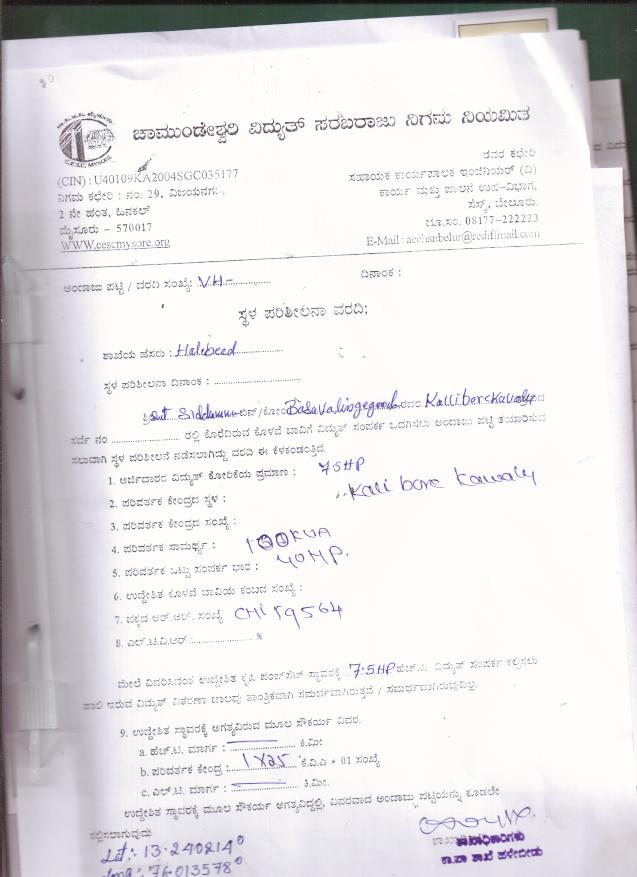 ಚಾಮುಂಡೇಶ್ವರಿ ವಿದ್ಯುತ್ ಸರಬರಾಜು ನಿಗಮ ನಿಯಮಿತ
C.E.S.C. MYSORE
(CIN) : U40109KA2004SGC035177
ನಿಗಮ ಕಛೇರಿ : ನಂ. 29, ವಿಜಯನಗರ,
2 ನೇ ಹಂತ, ಹಿನಕಲ್
ಮೈಸೂರು - 570017
WWW.cescmysore.org
ರವರ ಕಛೇರಿ
ಸಹಾಯಕ ಕಾರ್ಯಪಾಲಕ ಇಂಜಿನಿಯರ್ (ವಿ)
ಕಾರ್ಯ ಮತ್ತು ಪಾಲನ ಉಪ-ವಿಭಾಗ,
ಸೆಸ್ಕ್, ಬೇಲೂರು.
ದೂ.ಸಂ. 08177-222223
E-Mail : aeehsnbelur@rediffmail.com
ಅಂದಾಜು ಪಟ್ಟಿ / ವರದಿ ಸಂಖ್ಯೆ: VH-
ದಿನಾಂಕ :
ಸ್ಥಳ ಪರಿಶೀಲನಾ ವರದಿ;
ಶಾಖೆಯ ಹೆಸರು : Halebeed
ಸ್ಥಳ ಪರಿಶೀಲನಾ ದಿನಾಂಕ :
ಬಿನ್/ಕೋಂ Basavalingegowda ರವರ
ಸರ್ವೆ ನಂ ರಲ್ಲಿ ಕೊರೆದಿರುವ ಕೊಳವೆ ಬಾವಿಗೆ ವಿದ್ಯುತ್ ಸಂಪರ್ಕ ಒದಗಿಸಲು ಅಂದಾಜು ಪಟ್ಟಿ ತಯಾರಿಸುವ
ಸಲುವಾಗಿ ಸ್ಥಳ ಪರಿಶೀಲನೆ ನಡೆಸಲಾಗಿದ್ದು ವರದಿ ಈ ಕೆಳಕಂಡಂತ್ತಿದೆ.
1. ಅರ್ಜಿದಾರರ ವಿದ್ಯುತ್ ಕೋರಿಕೆಯ ಪ್ರಮಾಣ : 7.5HP
2. ಪರಿವರ್ತಕ ಕೇಂದ್ರದ ಸ್ಥಳ : Kalli bore Kawaly
3. ಪರಿವರ್ತಕ ಕೇಂದ್ರದ ಸಂಖ್ಯೆ :
4. ಪರಿವರ್ತಕ ಸಾಮರ್ಥ್ಯ : 100KVA
5. ಪರಿವರ್ತಕ ಒಟ್ಟು ಸಂಪರ್ಕ ಭಾರ : 40HP.
6. ಉದ್ದೇಶಿತ ಕೊಳವೆ ಬಾವಿಯ ಕಂಬದ ಸಂಖ್ಯೆ :
7. ಪಕ್ಕದ ಆರ್.ಆರ್. ಸಂಖ್ಯೆ
8. ಎಲ್.ಟಿ.ವಿ.ಆರ್ : %
ಮೇಲೆ ವಿವರಿಸಿದಂತೆ ಉದ್ದೇಶಿತ ಕೃಷಿ ಪಂಪ್‌ಸೆಟ್ ಸ್ಥಾವರಕ್ಕೆ 7.5HP ಹೆಚ್.ಪಿ. ವಿದ್ಯುತ್ ಸಂಪರ್ಕ ಕಲ್ಪಿಸಲು
ಹಾಲಿ ಇರುವ ವಿದ್ಯುತ್ ವಿತರಣಾ ಜಾಲವು ತಾಂತ್ರಿಕವಾಗಿ ಸಮರ್ಥವಾಗಿರುತ್ತದೆ / ಸಮರ್ಥವಾಗಿರುವುದಿಲ್ಲ.
9. ಉದ್ದೇಶಿತ ಸ್ಥಾವರಕ್ಕೆ ಅಗತ್ಯವಿರುವ ಮೂಲ ಸೌಕರ್ಯ ವಿವರ.
a. ಹೆಚ್.ಟಿ. ಮಾರ್ಗ : ಕಿ.ಮೀ
b. ಪರಿವರ್ತಕ ಕೇಂದ್ರ : 1X25 ಕೆ.ವಿ.ಎ * 01 ಸಂಖ್ಯೆ
c. ಎಲ್.ಟಿ. ಮಾರ್ಗ : ಕಿ.ಮೀ.
ಉದ್ದೇಶಿತ ಸ್ಥಾವರಕ್ಕೆ ಮೂಲ ಸೌಕರ್ಯ ಅಗತ್ಯವಿದ್ದಲ್ಲಿ, ವಿವರವಾದ ಅಂದಾಜು ಪಟ್ಟಿಯನ್ನು ಕೂಡಲೇ
ಸಲ್ಲಿಸಲಾಗುವುದು
ಶಾಖಾಧಿಕಾರಿಗಳು
ಕಾ.ಪಾ ಶಾಖೆ ಹಳೇಬೀಡು
Lat: 13.240214°
Long: 76.013578°